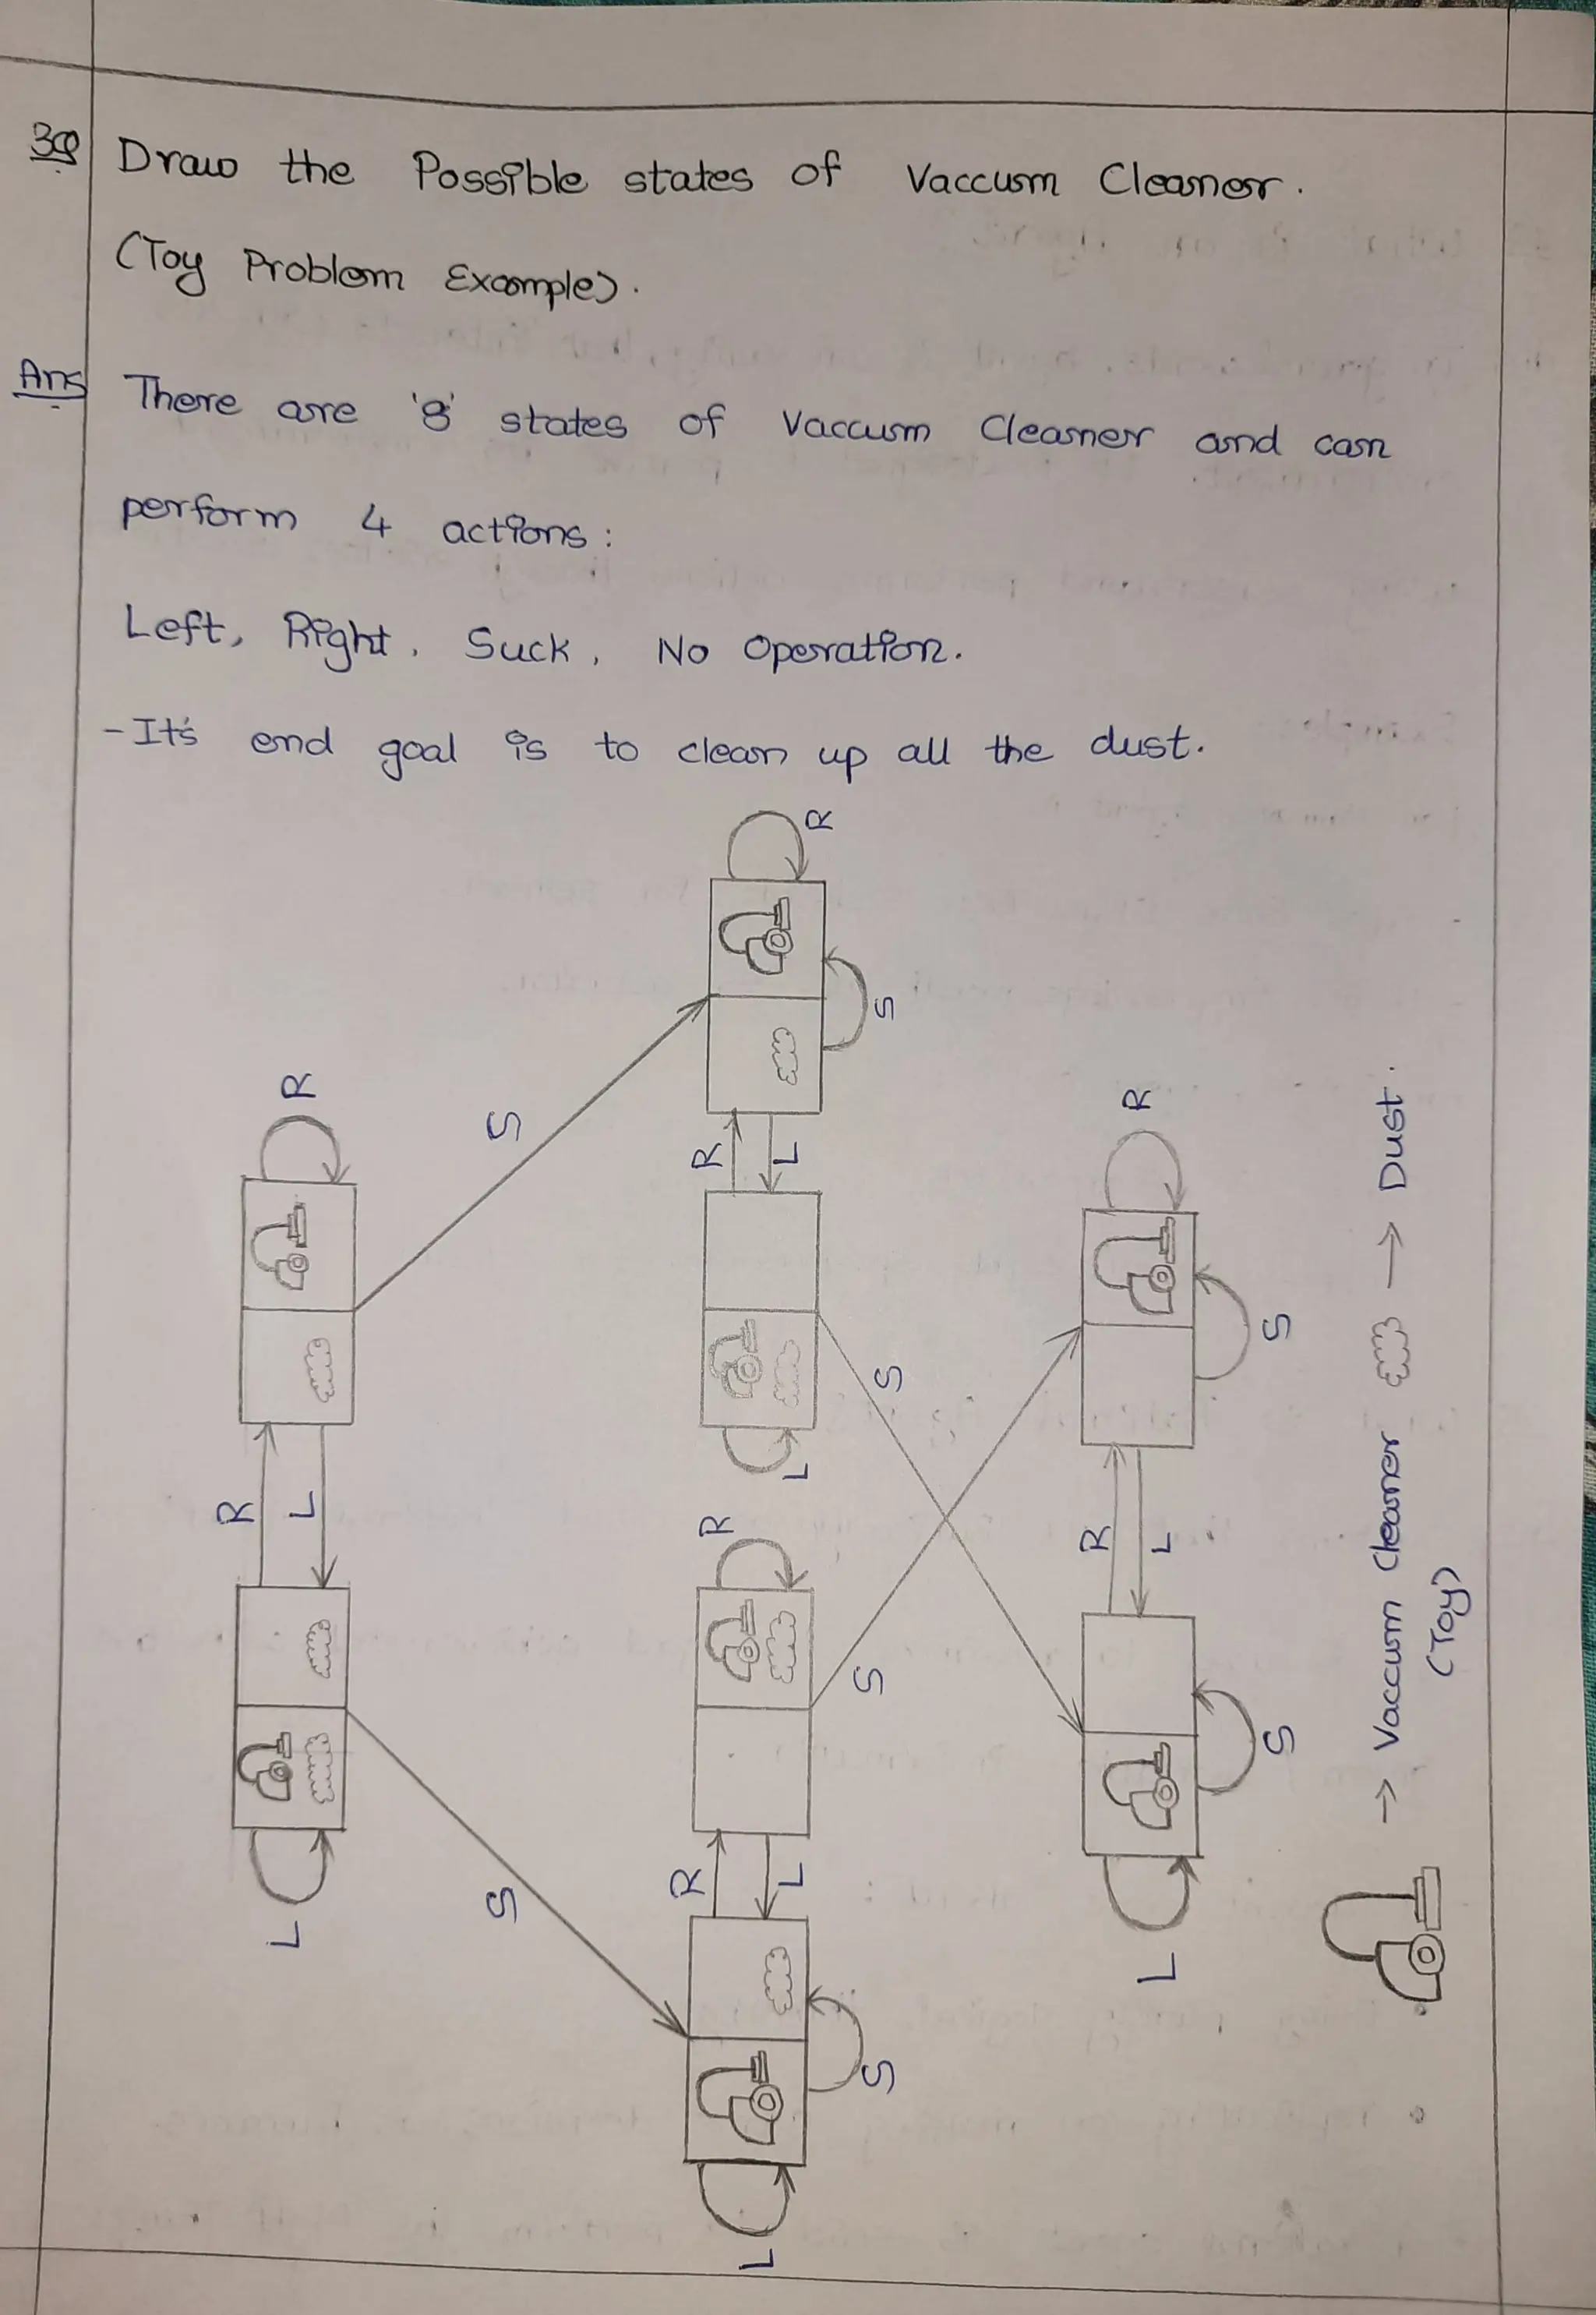 3Q Draw the Possible states of Vaccum Cleaner.
(Toy Problem Example).
Ans There are '8' states of Vaccum Cleaner and can
perform 4 actions:
Left, Right, Suck, No Operation.
- It's end goal is to clean up all the dust.
L
R
L
R
S
S
L
R
L
S
R
S
L
S
R
L
S
R
L
R
L
R
S
S
→ Vaccum Cleaner
(Toy)
→ Dust.